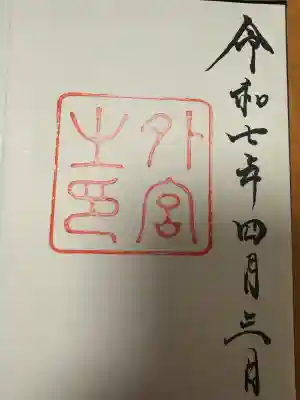 令和七年四月三日
外宮
之印